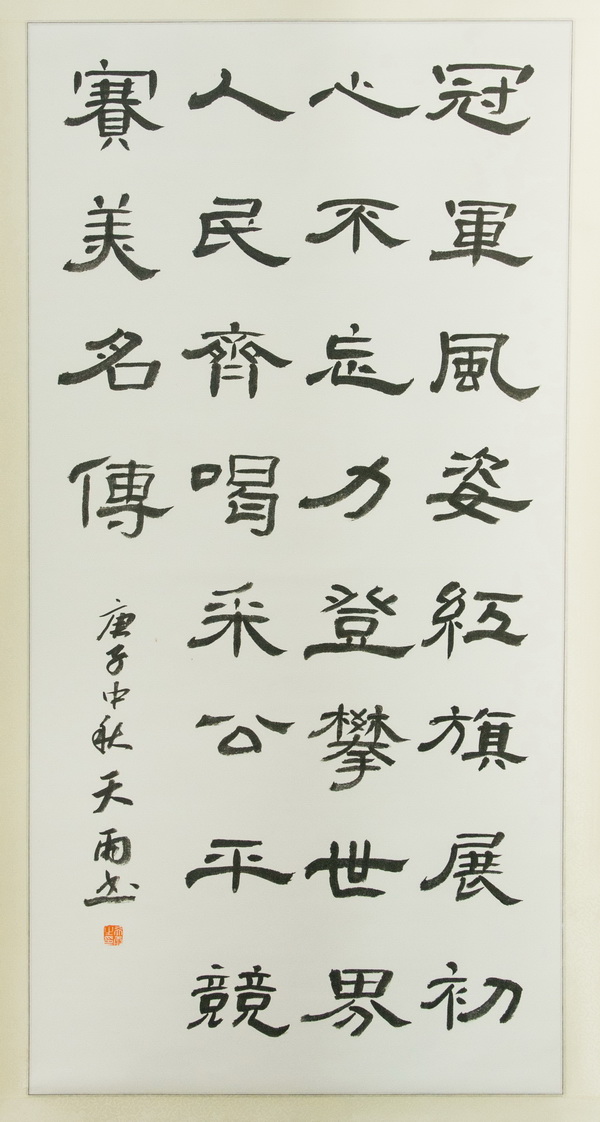 冠軍風姿紅旗展初
心不忘力登攀世界
人民齊喝采公平競
賽美名傳
庚子中秋天雨书